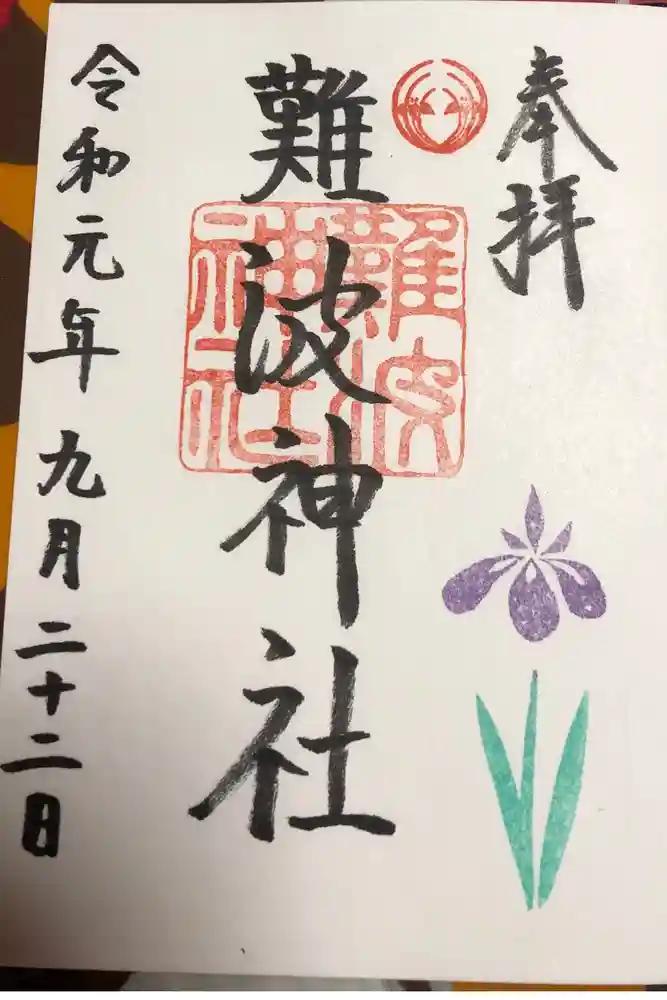 奉拝
難波神社
難波神社
令和元年九月二十二日